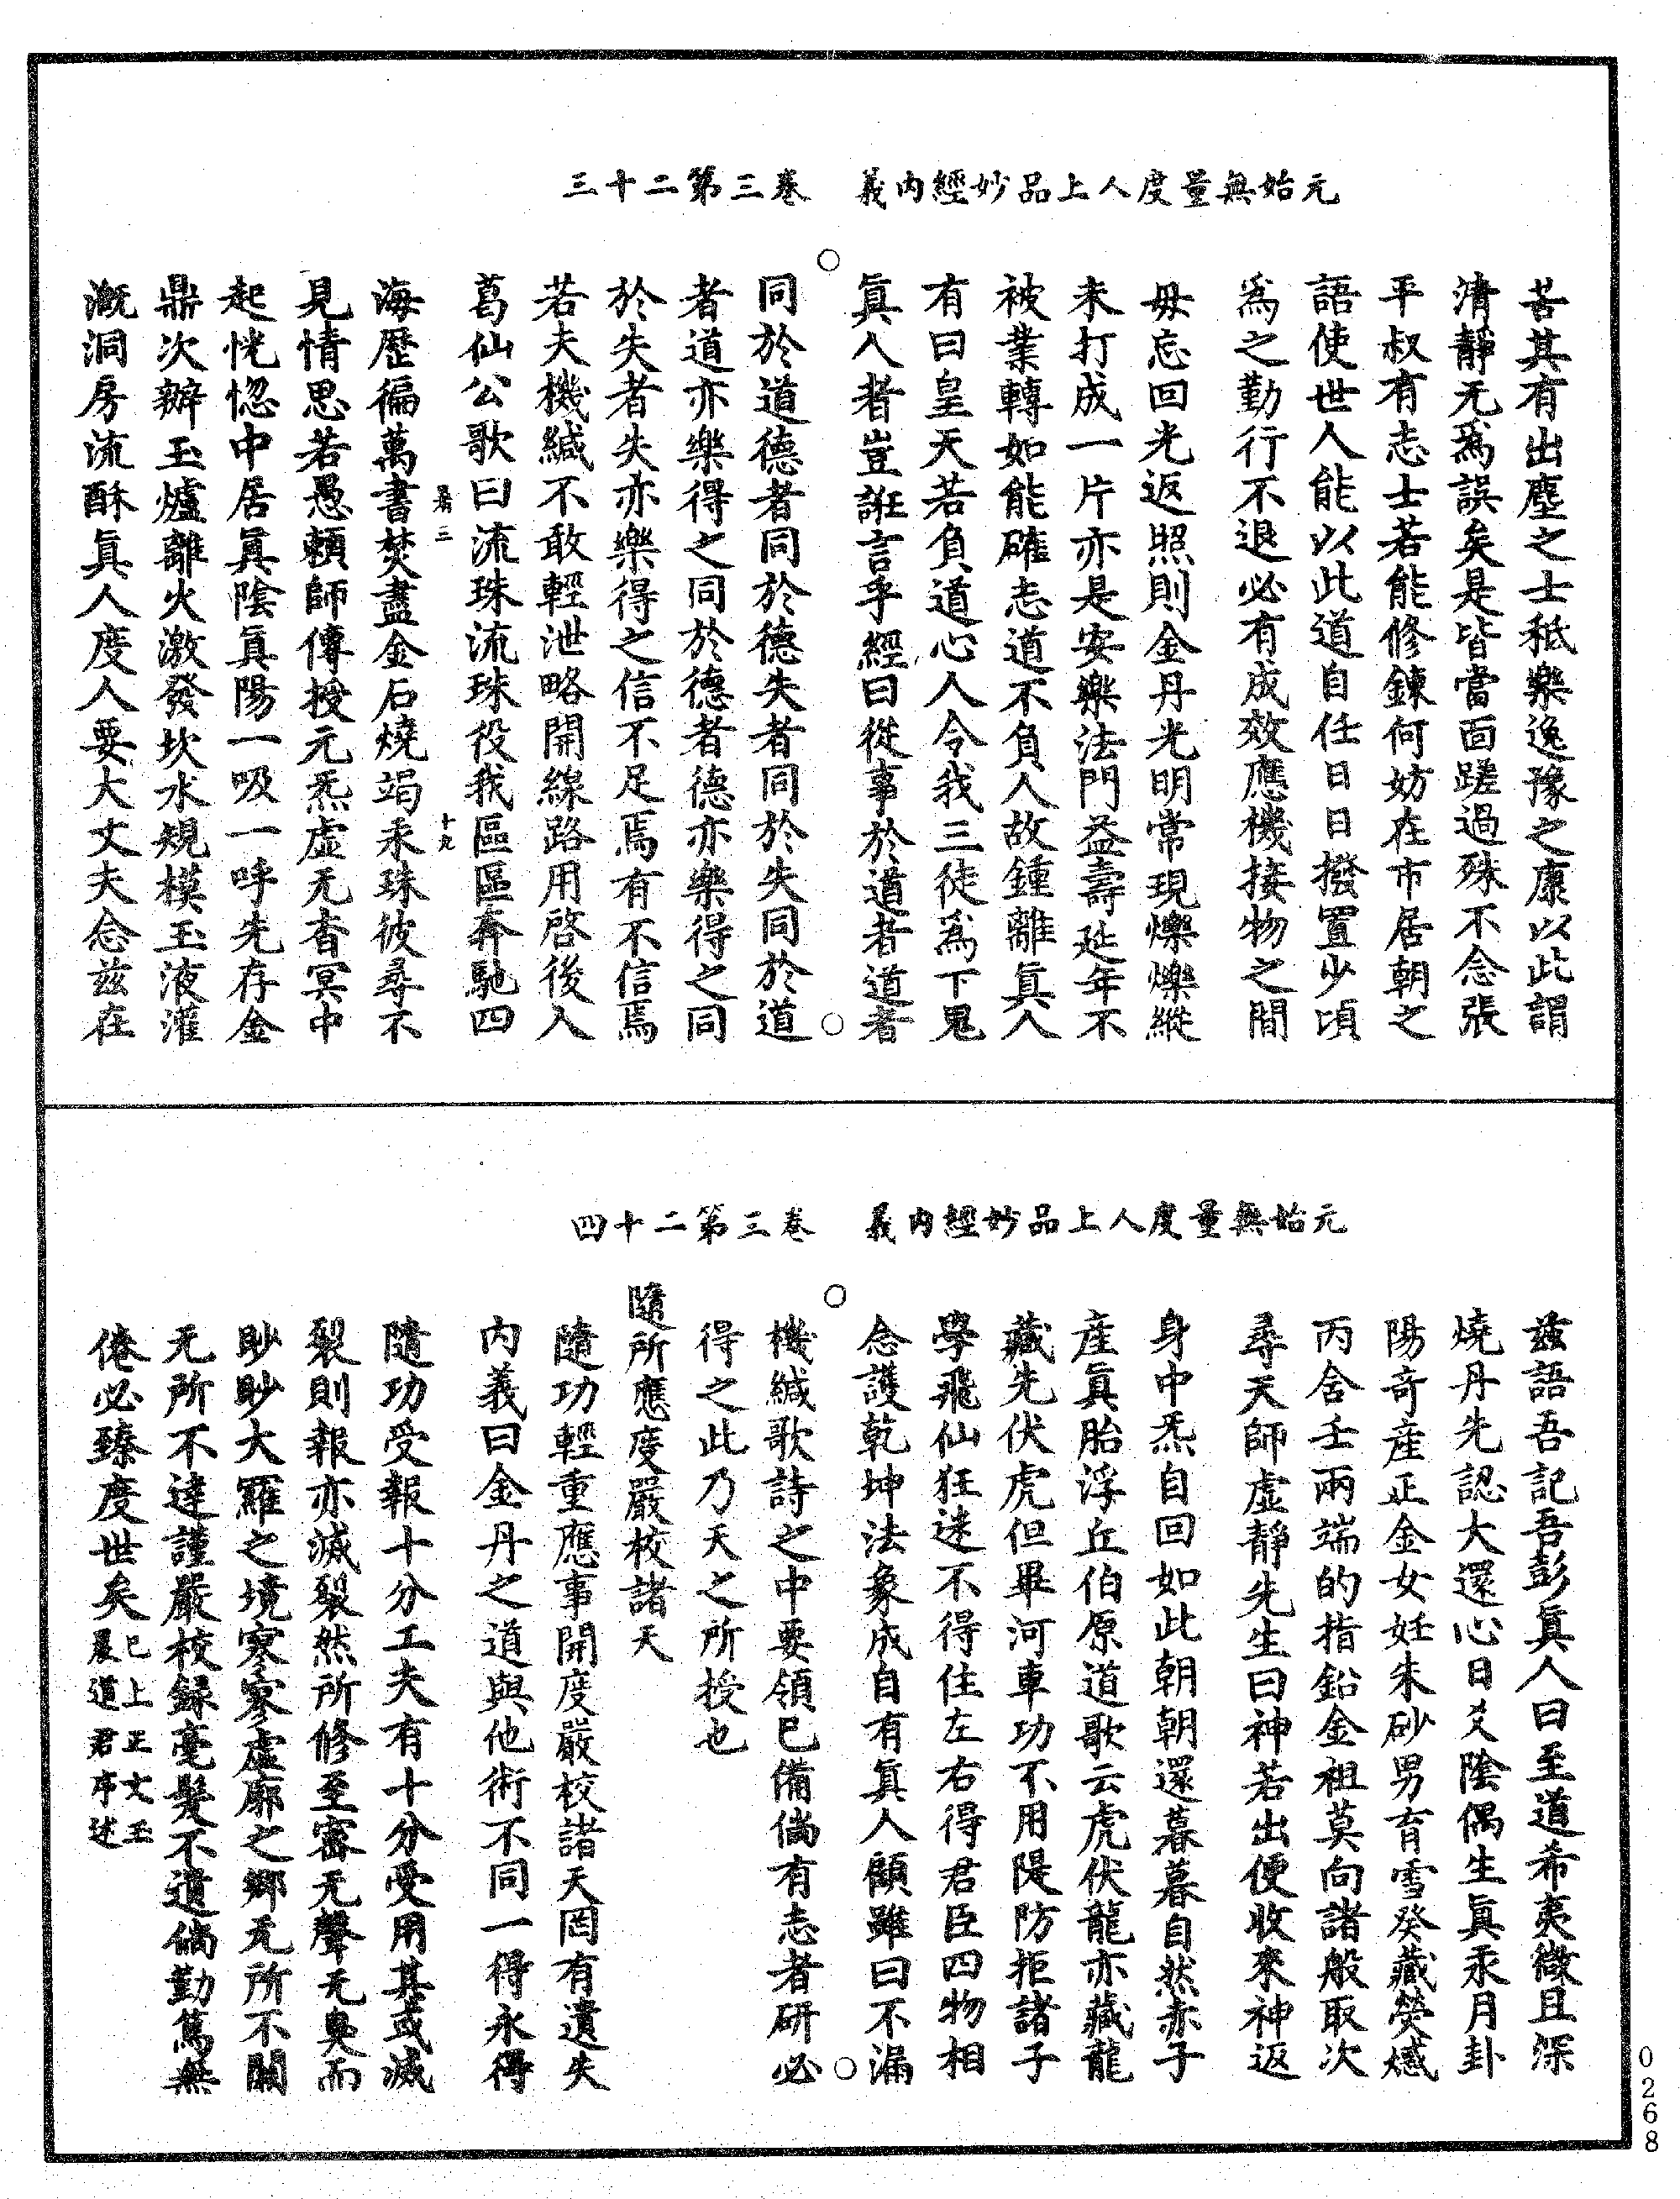 元始無量度人上品妙經內義　卷三第二十三
苦其有出塵之士秪樂逸豫之康以此謂
清靜无爲誤矣是皆當面蹉過殊不念張
平叔有志士若能修鍊何妨在市居朝之
語使世人能以此道自任日日撥置少頃
爲之勤行不退必有成效應機接物之間
毋忘回光返照則金丹光明常現爍爍縱
未打成一片亦是安樂法門益壽延年不
被業轉如能確志道不負人故鍾離眞人
有曰皇天若負道心人令我三徒爲下鬼
眞人者豈誑言乎經曰從事於道者道者
同於道德者同於德失者同於失同於道
者道亦樂得之同於德者德亦樂得之同
於失者失亦樂得之信不足焉有不信焉
若夫機緘不敢輕泄略開線路用啓後人
葛仙公歌曰流珠流珠役我區區奔馳四
海歷徧萬書焚盡金石燒竭汞珠彼尋不
見情思若愚頼師傳授元炁虛无杳冥中
起恍惚中居眞陰眞陽一吸一呼先存金
鼎次辦玉爐離火激發坎水規模玉液灌
溉洞房流酥眞人度人要大丈夫念兹在
元始無量度人上品妙經內義　卷三第二十四
兹語吾記吾彭眞人曰至道希夷微且深
燒丹先認大還心日爻陰偶生眞汞月卦
陽奇産正金女妊朱砂男育雪癸藏熒惑
丙含壬兩端的指鉛金祖莫向諸般取次
尋天師虛靜先生曰神若出便收來神返
身中炁自回如此朝朝還暮暮自然赤子
産眞胎浮丘伯原道歌云虎伏龍亦藏龍
藏先伏虎但畢河車功不用隄防拒諸子
學飛仙狂迷不得住左右得君臣四物相
念護乾坤法象成自有眞人顧雖曰不漏
機緘歌詩之中要領已備倘有志者研必
得之此乃天之所授也
隨所應度嚴校諸天
隨功輕重應事開度嚴校諸天罔有遺失
內義曰金丹之道與他術不同一得永得
隨功受報十分工夫有十分受用其或滅
裂則報亦滅裂然所修至密无聲无臭而
眇眇大羅之境寥寥虛廓之鄉无所不關
无所不達謹嚴校録毫髮不遺倘勤篤無
倦必臻度世矣已上正文玉
晨道君序述
0268